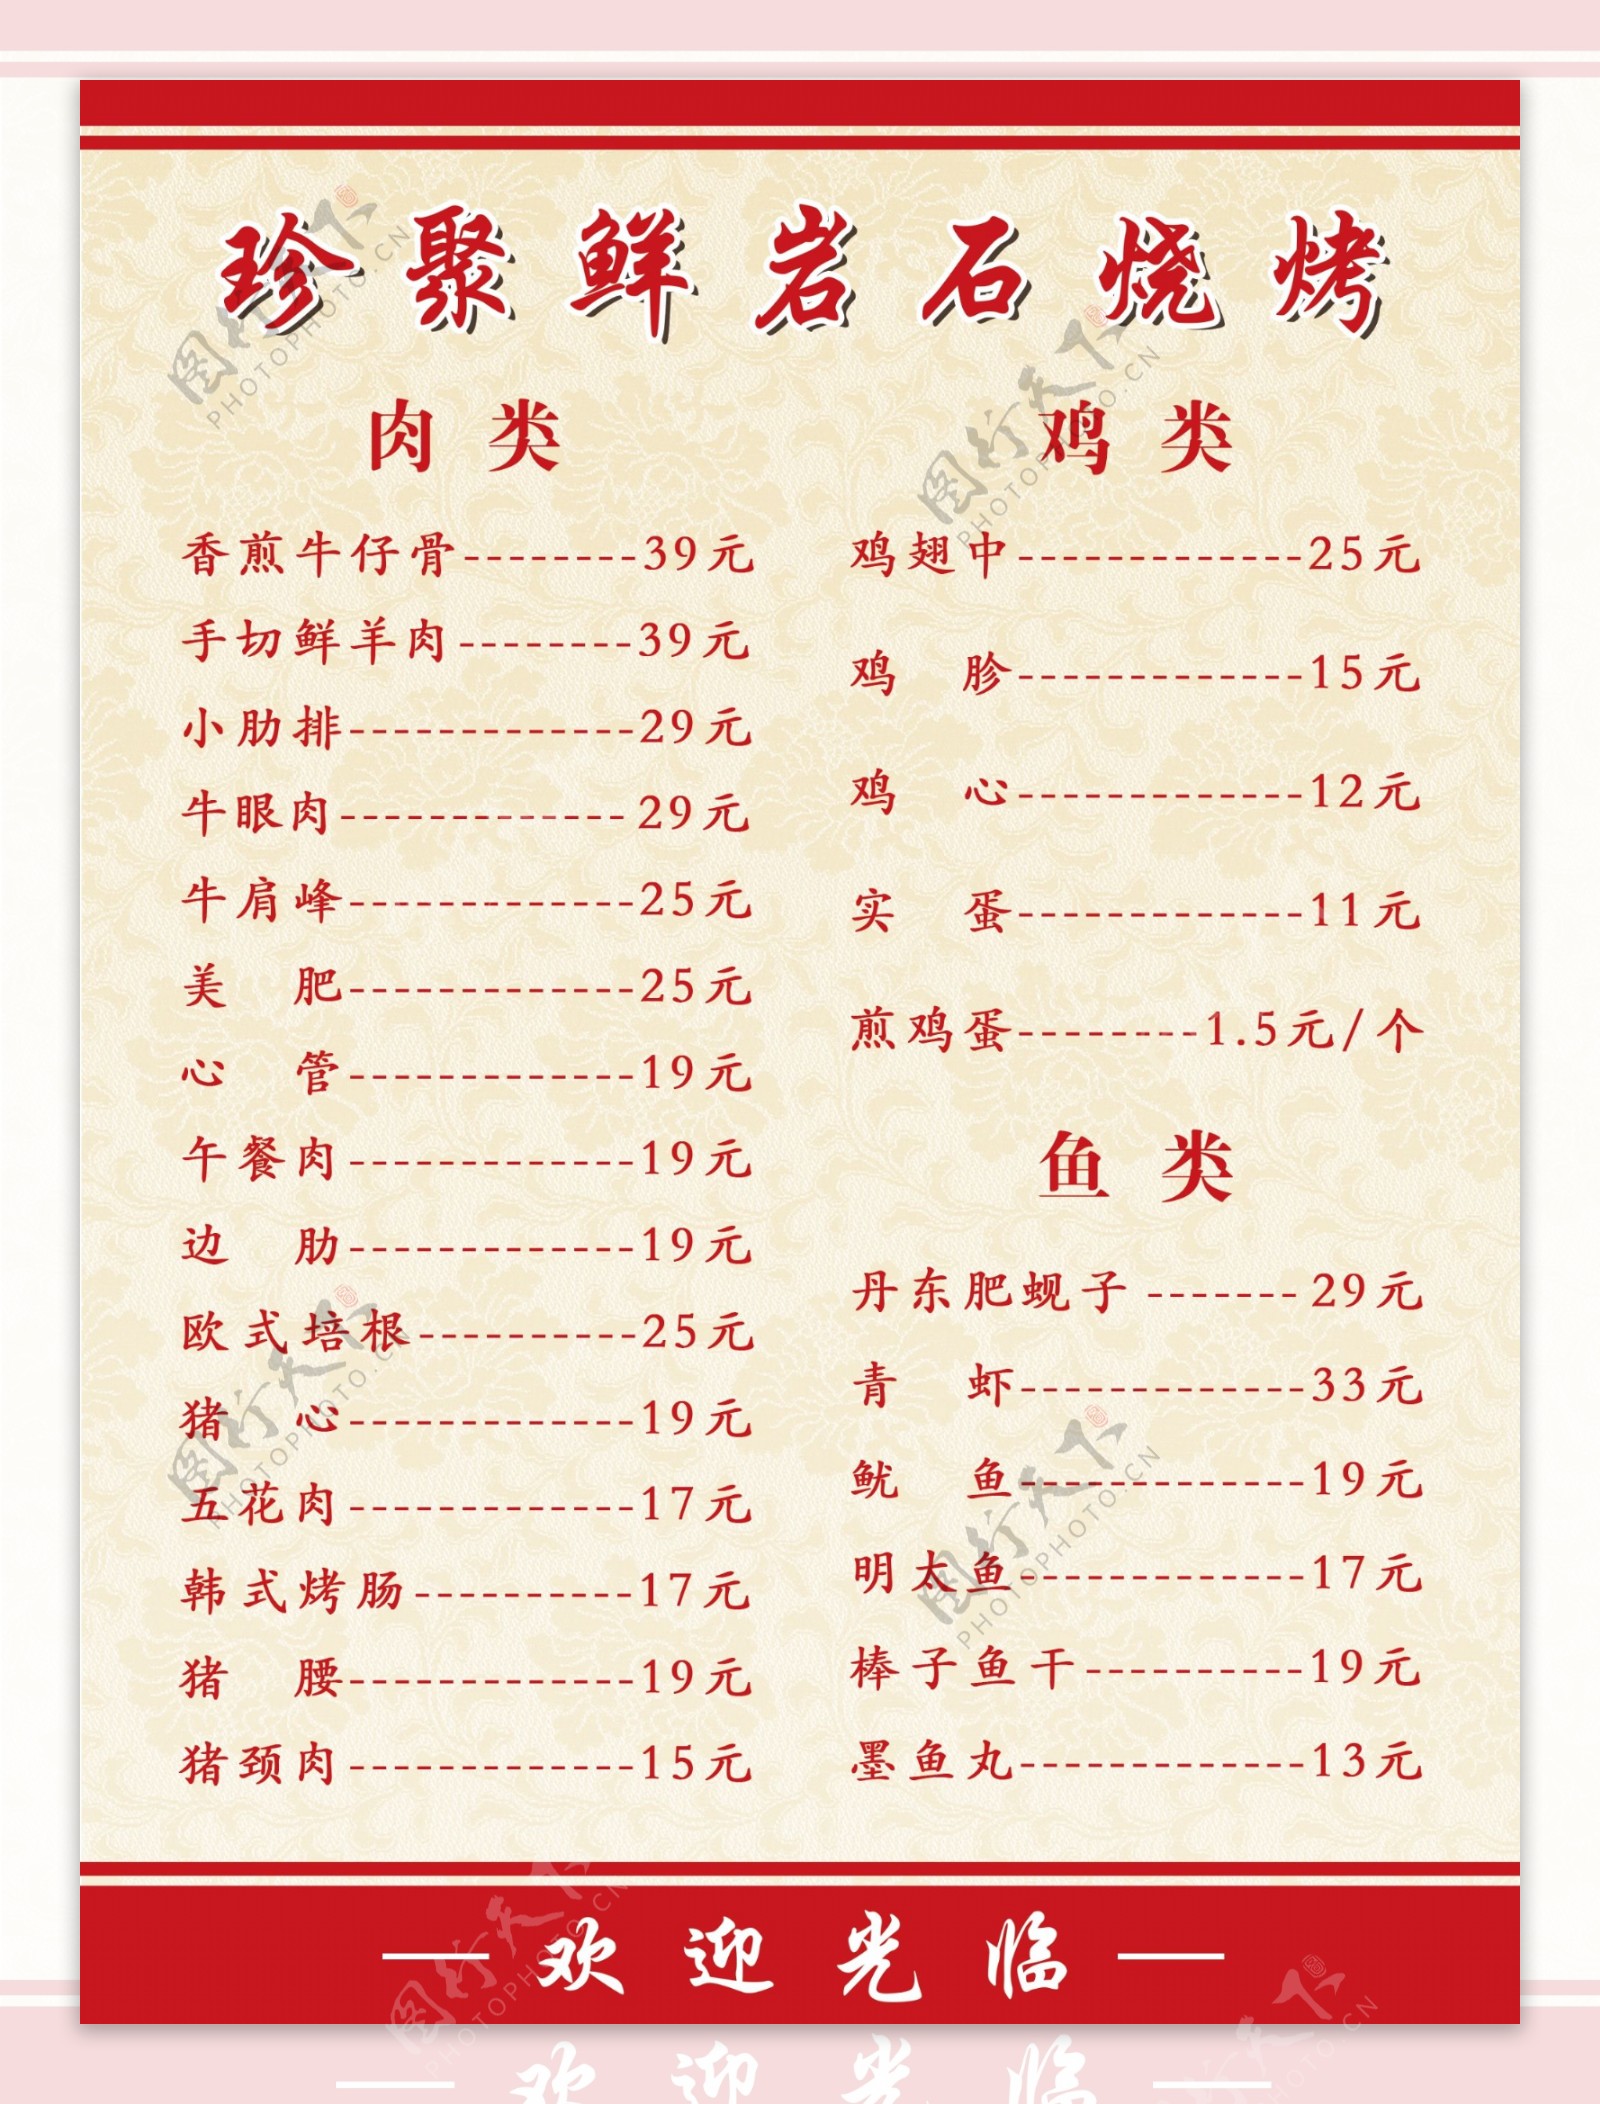 珍聚鲜岩石烧烤
肉类
香煎牛仔骨--------39元
手切鲜羊肉--------39元
小肋排-------------29元
牛眼肉-------------29元
牛肩峰-------------25元
美 肥-------------25元
心 管-------------19元
午餐肉-------------19元
边 肋-------------19元
欧式培根----------25元
猪 心-------------19元
五花肉-------------17元
韩式烤肠----------17元
猪 腰-------------19元
猪颈肉-------------15元
鸡类
鸡翅中-------------25元
鸡 胗-------------15元
鸡 心-------------12元
实 蛋-------------11元
煎鸡蛋--------1.5元/个
鱼类
丹东肥蚬子-------29元
青 虾-------------33元
鱿 鱼-------------19元
明太鱼-------------17元
棒子鱼干----------19元
墨鱼丸-------------13元
欢迎光临
欢迎光临
图行天下
PHOTOPHOTO.CN
图行天下
PHOTOPHOTO.CN
图行天下
PHOTOPHOTO.CN
图行天下
PHOTOPHOTO.CN
图行天下
PHOTOPHOTO.CN